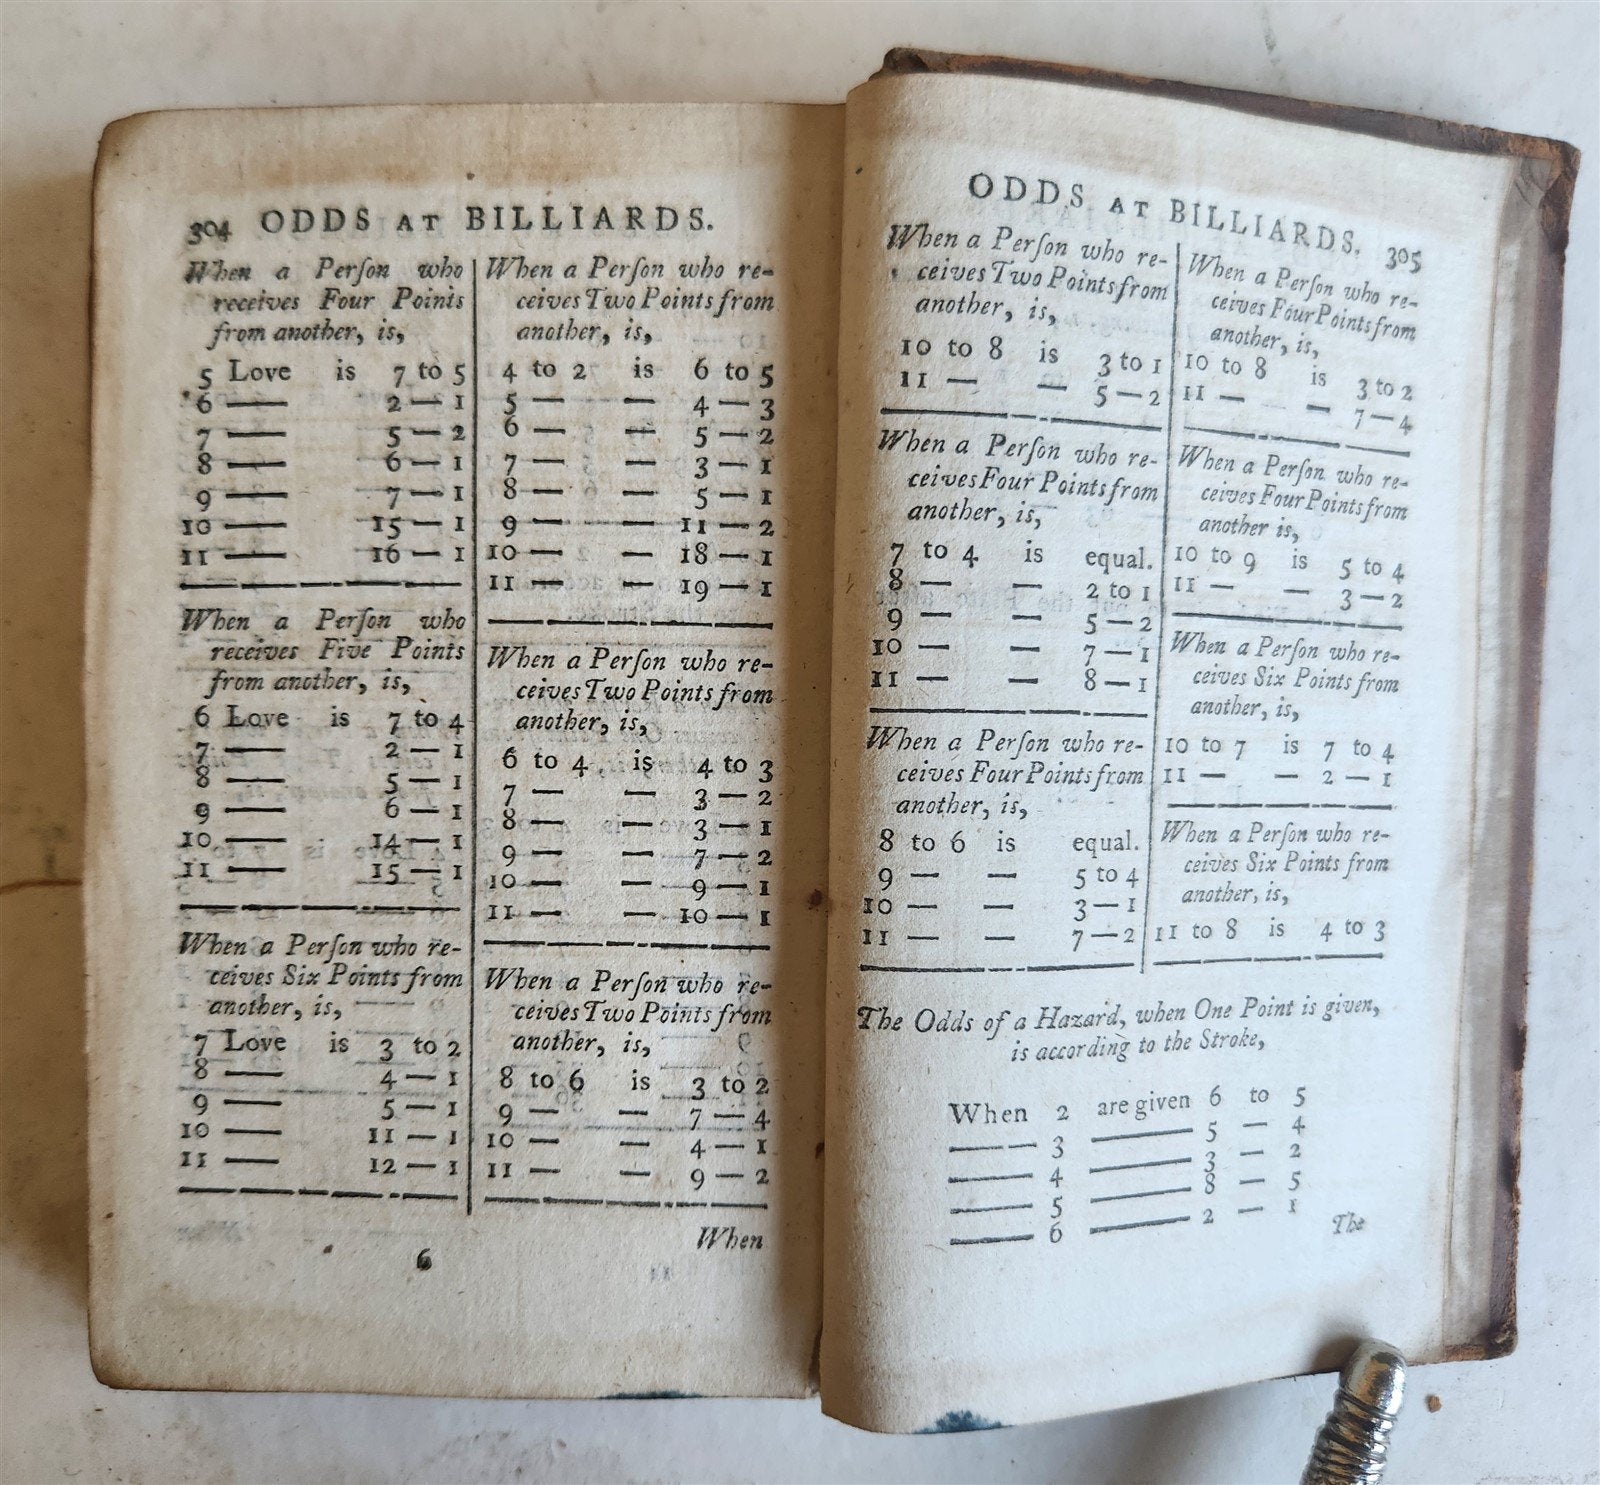 304 ODDS AT BILLIARDS.
When a Perſon who
receives Four Points
from another, is,
5 Love is 7 to 5
6 — 2 — 1
7 — 5 — 2
8 — 6 — 1
9 — 7 — 1
10 — 15 — 1
11 — 16 — 1
When a Perſon who
receives Five Points
from another, is,
6 Love is 7 to 4
7 — 2 — 1
8 — 5 — 1
9 — 6 — 1
10 — 14 — 1
11 — 15 — 1
When a Perſon who re-
ceives Six Points from
another, is,
7 Love is 3 to 2
8 — 4 — 1
9 — 5 — 1
10 — 11 — 1
11 — 12 — 1
When a Perſon who re-
ceives Two Points from
another, is,
4 to 2 is 6 to 5
5 — — 4 — 3
6 — — 5 — 2
7 — — 3 — 1
8 — — 5 — 1
9 — — 11 — 2
10 — — 18 — 1
11 — — 19 — 1
When a Perſon who re-
ceives Two Points from
another, is,
6 to 4 is 4 to 3
7 — — 3 — 2
8 — — 3 — 1
9 — — 7 — 2
10 — — 9 — 1
11 — — 10 — 1
When a Perſon who re-
ceives Two Points from
another, is,
8 to 6 is 3 to 2
9 — — 7 — 4
10 — — 4 — 1
11 — — 9 — 2
When
6
ODDS AT BILLIARDS. 305
When a Perſon who re-
ceives Two Points from
another, is,
10 to 8 is 3 to 1
11 — — 5 — 2
When a Perſon who re-
ceives Four Points from
another, is,
7 to 4 is equal.
8 — — 2 to 1
9 — — 5 — 2
10 — — 7 — 1
11 — — 8 — 1
When a Perſon who re-
ceives Four Points from
another, is,
8 to 6 is equal.
9 — — 5 to 4
10 — — 3 — 1
11 — — 7 — 2
When a Perſon who re-
ceives Four Points from
another, is,
10 to 8 is 3 to 2
11 — — 7 — 4
When a Perſon who re-
ceives Four Points from
another is,
10 to 9 is 5 to 4
11 — — 3 — 2
When a Perſon who re-
ceives Six Points from
another, is,
10 to 7 is 7 to 4
11 — — 2 — 1
When a Perſon who re-
ceives Six Points from
another, is,
11 to 8 is 4 to 3
The Odds of a Hazard, when One Point is given,
is according to the Stroke,
When 2 are given 6 to 5
— 3 — 5 — 4
— 4 — 3 — 2
— 5 — 8 — 5
— 6 — 2 — 1
The